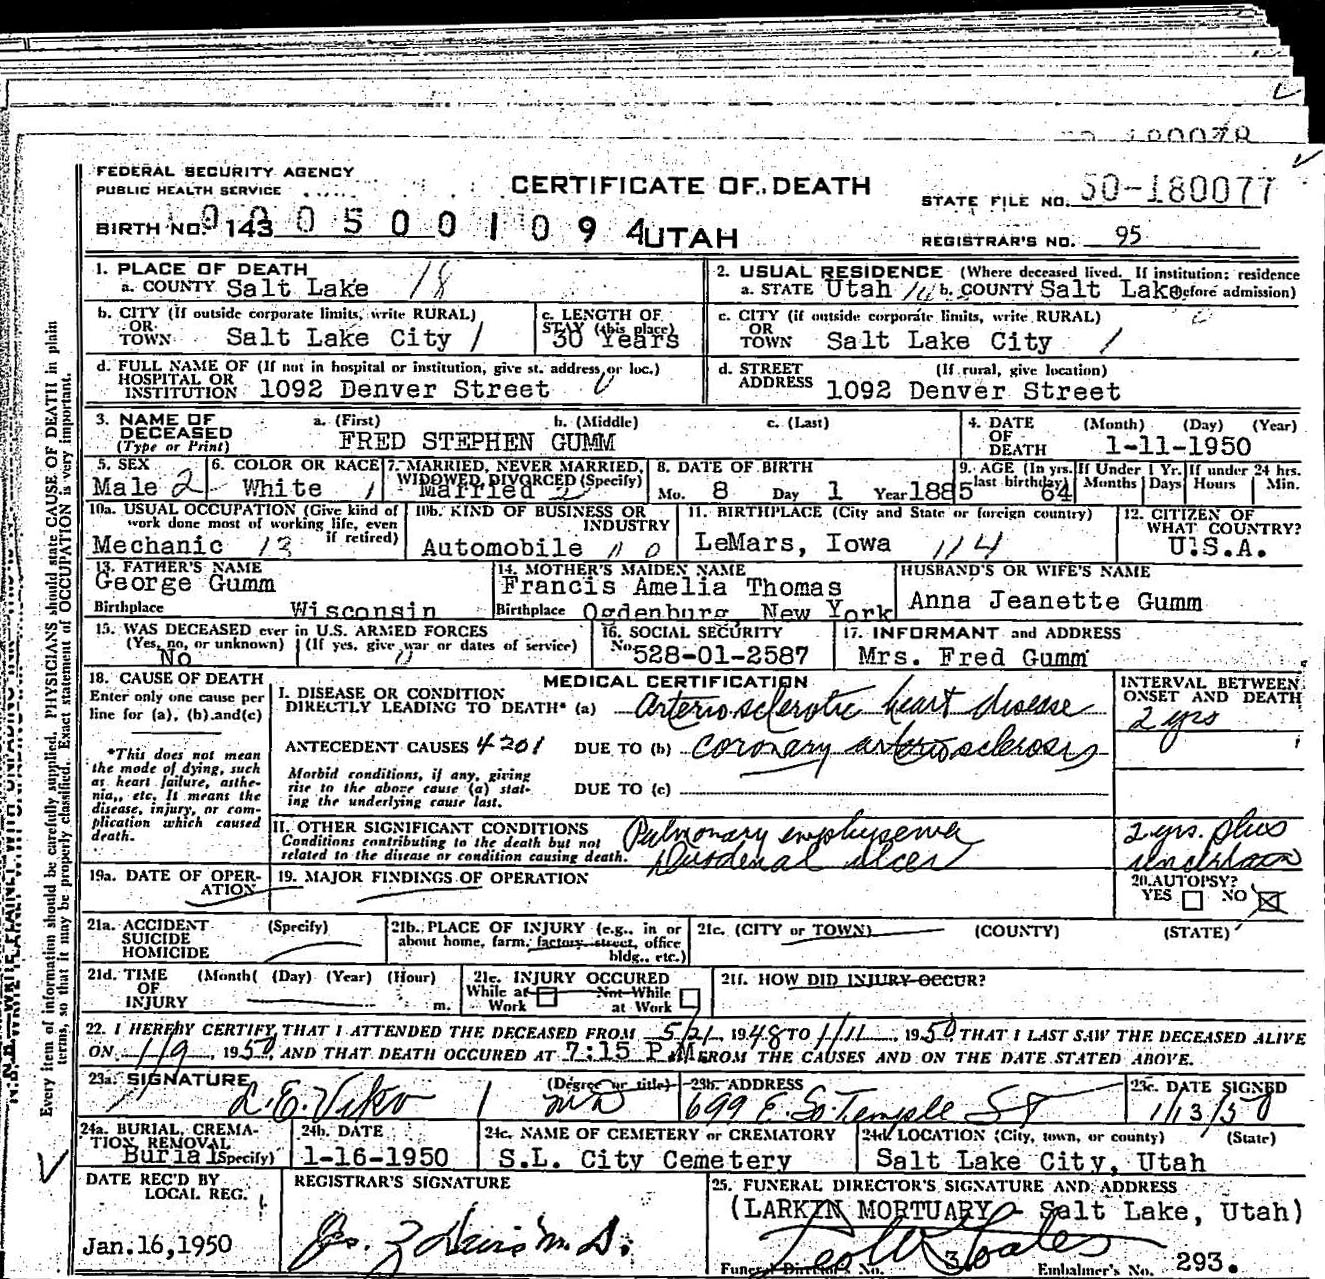 180078
FEDERAL SECURITY AGENCY
PUBLIC HEALTH SERVICE
CERTIFICATE OF DEATH
STATE FILE NO. 50-180077
BIRTH NO. 143 0 0 0 5 0 0 1 0 9 4 UTAH
REGISTRAR'S NO. 95
1. PLACE OF DEATH
a. COUNTY Salt Lake 18
2. USUAL RESIDENCE (Where deceased lived. If institution: residence
a. STATE Utah b. COUNTY Salt Lake before admission)
b. CITY (If outside corporate limits, write RURAL)
OR
TOWN Salt Lake City 1
c. LENGTH OF
STAY (this place)
30 Years
c. CITY (if outside corporate limits, write RURAL)
OR
TOWN Salt Lake City 1
d. FULL NAME OF (If not in hospital or institution, give st. address or loc.)
HOSPITAL OR
INSTITUTION 1092 Denver Street
d. STREET (If rural, give location)
ADDRESS 1092 Denver Street
3. NAME OF a. (First) b. (Middle) c. (Last)
DECEASED
(Type or Print) FRED STEPHEN GUMM
4. DATE (Month) (Day) (Year)
OF
DEATH 1-11-1950
5. SEX
Male 2
6. COLOR OR RACE
White 1
7. MARRIED, NEVER MARRIED,
WIDOWED, DIVORCED (Specify)
Married 2
8. DATE OF BIRTH
Mo. 8 Day 1 Year 1885
9. AGE (In yrs.
last birthday) 64
If Under 1 Yr.
Months Days
If under 24 hrs.
Hours Min.
10a. USUAL OCCUPATION (Give kind of
work done most of working life, even
if retired)
Mechanic 13
10b. KIND OF BUSINESS OR
INDUSTRY
Automobile
11. BIRTHPLACE (City and State or foreign country)
LeMars, Iowa 114
12. CITIZEN OF
WHAT COUNTRY?
U.S.A.
13. FATHER'S NAME
George Gumm
Birthplace Wisconsin
14. MOTHER'S MAIDEN NAME
Francis Amelia Thomas
Birthplace Ogdenburg, New York
HUSBAND'S OR WIFE'S NAME
Anna Jeanette Gumm
15. WAS DECEASED ever in U.S. ARMED FORCES
(Yes, no, or unknown) (If yes, give war or dates of service)
No
16. SOCIAL SECURITY
No. 528-01-2587
17. INFORMANT and ADDRESS
Mrs. Fred Gumm
18. CAUSE OF DEATH
Enter only one cause per
line for (a), (b) and (c)
*This does not mean
the mode of dying, such
as heart failure, asthe-
nia, etc. It means the
disease, injury, or com-
plication which caused
death.
MEDICAL CERTIFICATION
I. DISEASE OR CONDITION
DIRECTLY LEADING TO DEATH* (a) Arteriosclerotic heart disease
ANTECEDENT CAUSES 4201 DUE TO (b) coronary arteriosclerosis
Morbid conditions, if any, giving
rise to the above cause (a) stat-
ing the underlying cause last.
DUE TO (c)
II. OTHER SIGNIFICANT CONDITIONS
Conditions contributing to the death but not
related to the disease or condition causing death.
Pulmonary emphysema
Duodenal ulcer
INTERVAL BETWEEN
ONSET AND DEATH
2 yrs
2 yrs. plus
uncertain
19a. DATE OF OPER-
ATION
19. MAJOR FINDINGS OF OPERATION
20. AUTOPSY?
YES NO
21a. ACCIDENT (Specify)
SUICIDE
HOMICIDE
21b. PLACE OF INJURY (e.g., in or
about home, farm, factory, street, office
bldg., etc.)
21c. (CITY or TOWN) (COUNTY) (STATE)
21d. TIME (Month) (Day) (Year) (Hour)
OF
INJURY m.
21e. INJURY OCCURED
While at Not While
Work at Work
21f. HOW DID INJURY OCCUR?
22. I HEREBY CERTIFY THAT I ATTENDED THE DECEASED FROM 5/21, 1948 TO 1/11, 1950 THAT I LAST SAW THE DECEASED ALIVE
ON 1/9, 1950, AND THAT DEATH OCCURED AT 7:15 P.M. FROM THE CAUSES AND ON THE DATE STATED ABOVE.
23a. SIGNATURE (Degree or title)
L.E. Viko MD
23b. ADDRESS
699 E. So. Temple St
23c. DATE SIGNED
1/13/50
24a. BURIAL, CREMA-
TION REMOVAL
Burial (Specify)
24b. DATE
1-16-1950
24c. NAME OF CEMETERY or CREMATORY
S.L. City Cemetery
24d. LOCATION (City, town, or county) (State)
Salt Lake City, Utah
DATE REC'D BY
LOCAL REG.
Jan.16,1950
REGISTRAR'S SIGNATURE
M.D.
25. FUNERAL DIRECTOR'S SIGNATURE AND ADDRESS
(LARKIN MORTUARY - Salt Lake, Utah)
Funeral Director's No. Embalmer's No. 293.
Every item of information should be carefully supplied. PHYSICIANS should state CAUSE OF DEATH in plain
terms, so that it may be properly classified. Exact statement of OCCUPATION is very important.